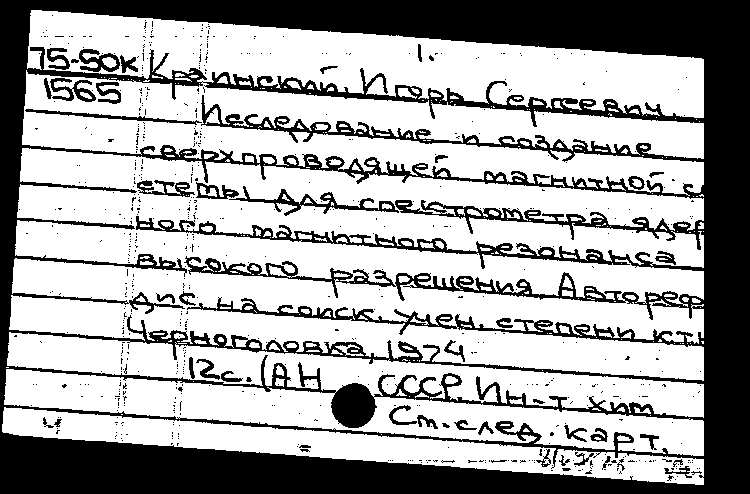 1.
75-50к Краинский, Игорь Сергеевич.
1565
Исследование и создание
сверхпроводящей магнитной си
стемы для спектрометра ядер
ного магнитного резонанса
высокого разрешения. Автореф
дис. на соиск. учен. степени ктн
Черноголовка, 1974
12с. (АН СССР. Ин-т хим.
См. след. карт.
ч